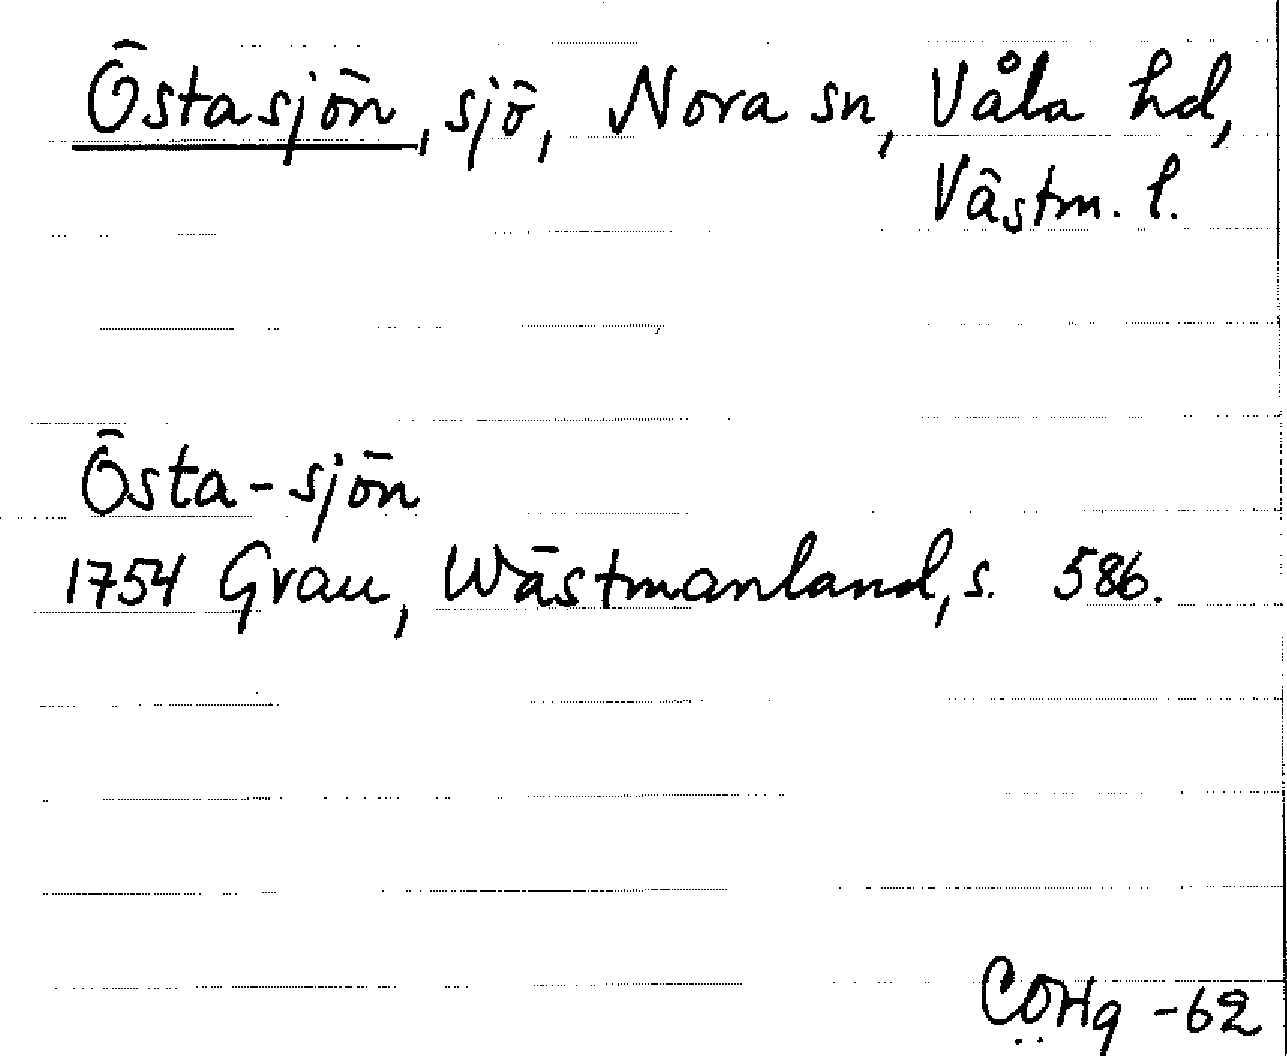 Östasjön, sjö, Nora sn, Våla hd,
Västm. l.
Östa-sjön
1754 Grau, Wästmanland, s. 586.
CÖHg -62